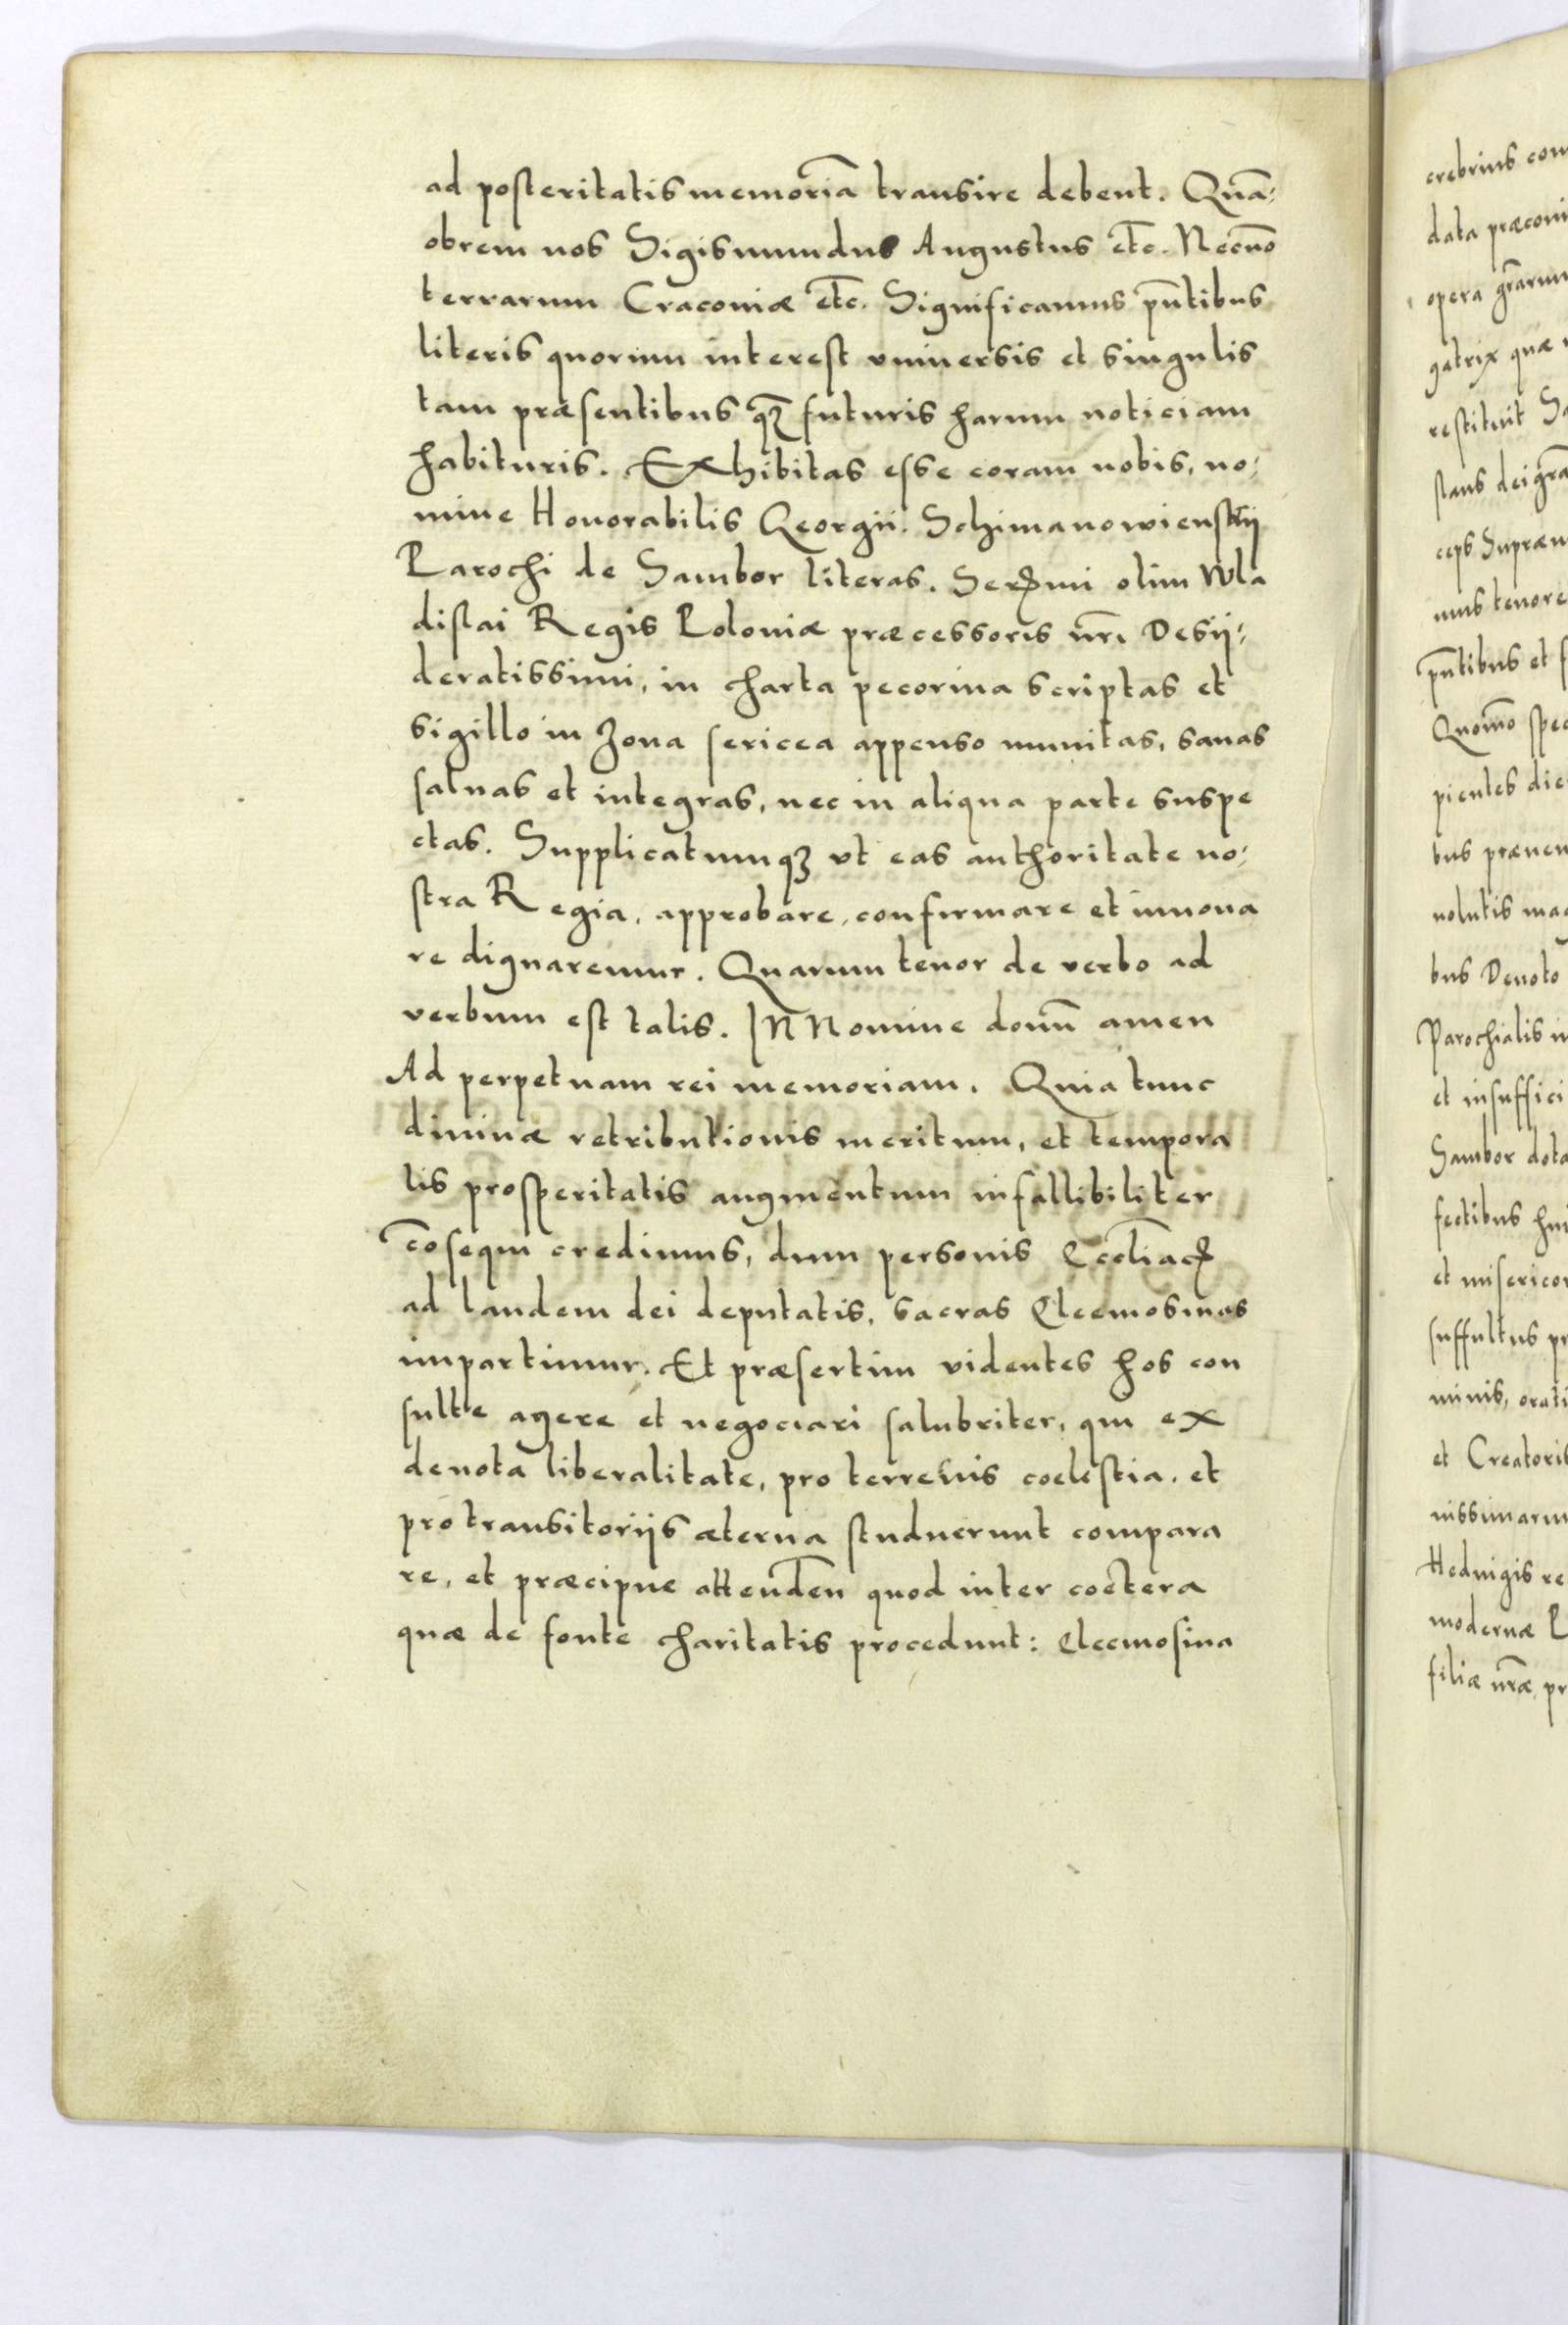 ad posteritatis memoriã transire debent. Quã-
obrem nos Sigismundus Augustus etc̃. Necnõ
terrarum Cracoviæ etc̃. Significamus pñtibus
literis quorum interest vniuersis et singulis
tam præsentibus q̃ꝫ futuris harum noticiam
habituris. Exhibitas esse coram nobis, no-
mine Honorabilis Georgii. Schimanowienskij
Parochi de Sambor literas. Serꝑmi olim Wla
dislai Regis Poloniæ præcessoris nr̃i Desij-
deratissimi, in charta pecorina scriptas et
sigillo in zona sericea appenso munitas, sanas
saluas et integras, nec in aliqua parte suspe
ctas. Supplicatumqꝫ vt eas authoritate no-
stra Regia, approbare, confirmare et innoua
re dignaremur. Quarum tenor de verbo ad
verbum est talis. IN Nomine domñ amen
Ad perpetuam rei memoriam. Quia tunc
diuinæ retributionis meritum, et tempora
lis prosperitatis augmentum infallibiliter
cõsequi credimus, dum personis Eccl̃iaꝝ
ad laudem dei deputatis, sacras Eleemosinas
impartimur. Et præsertim videntes hos con
sulte agere et negociari salubriter, qui ex
deuota liberalitate, pro terrenis coelestia, et
pro transitoriis æterna studuerunt compara
re, et præcipue attendeñ quod inter coetera
quæ de fonte charitatis procedunt: Eleemosina
crebrius con
data præconi
opera gr̃arum
gatrix quæ
restituit Sa
slaus dei gr̃a
ceps Supræm
mus tenore
pñtibus et f
Quomõ spec
pientes die
bus præuen
uolutis mag
bus Deuoto
Parochialis
et insuffici
Sambor dota
fectibus hui
et misericor
suffultus pr
minis, orati
et Creatoris
nissimarum
Heduigis re
modernæ P
filiæ nr̃æ, pr